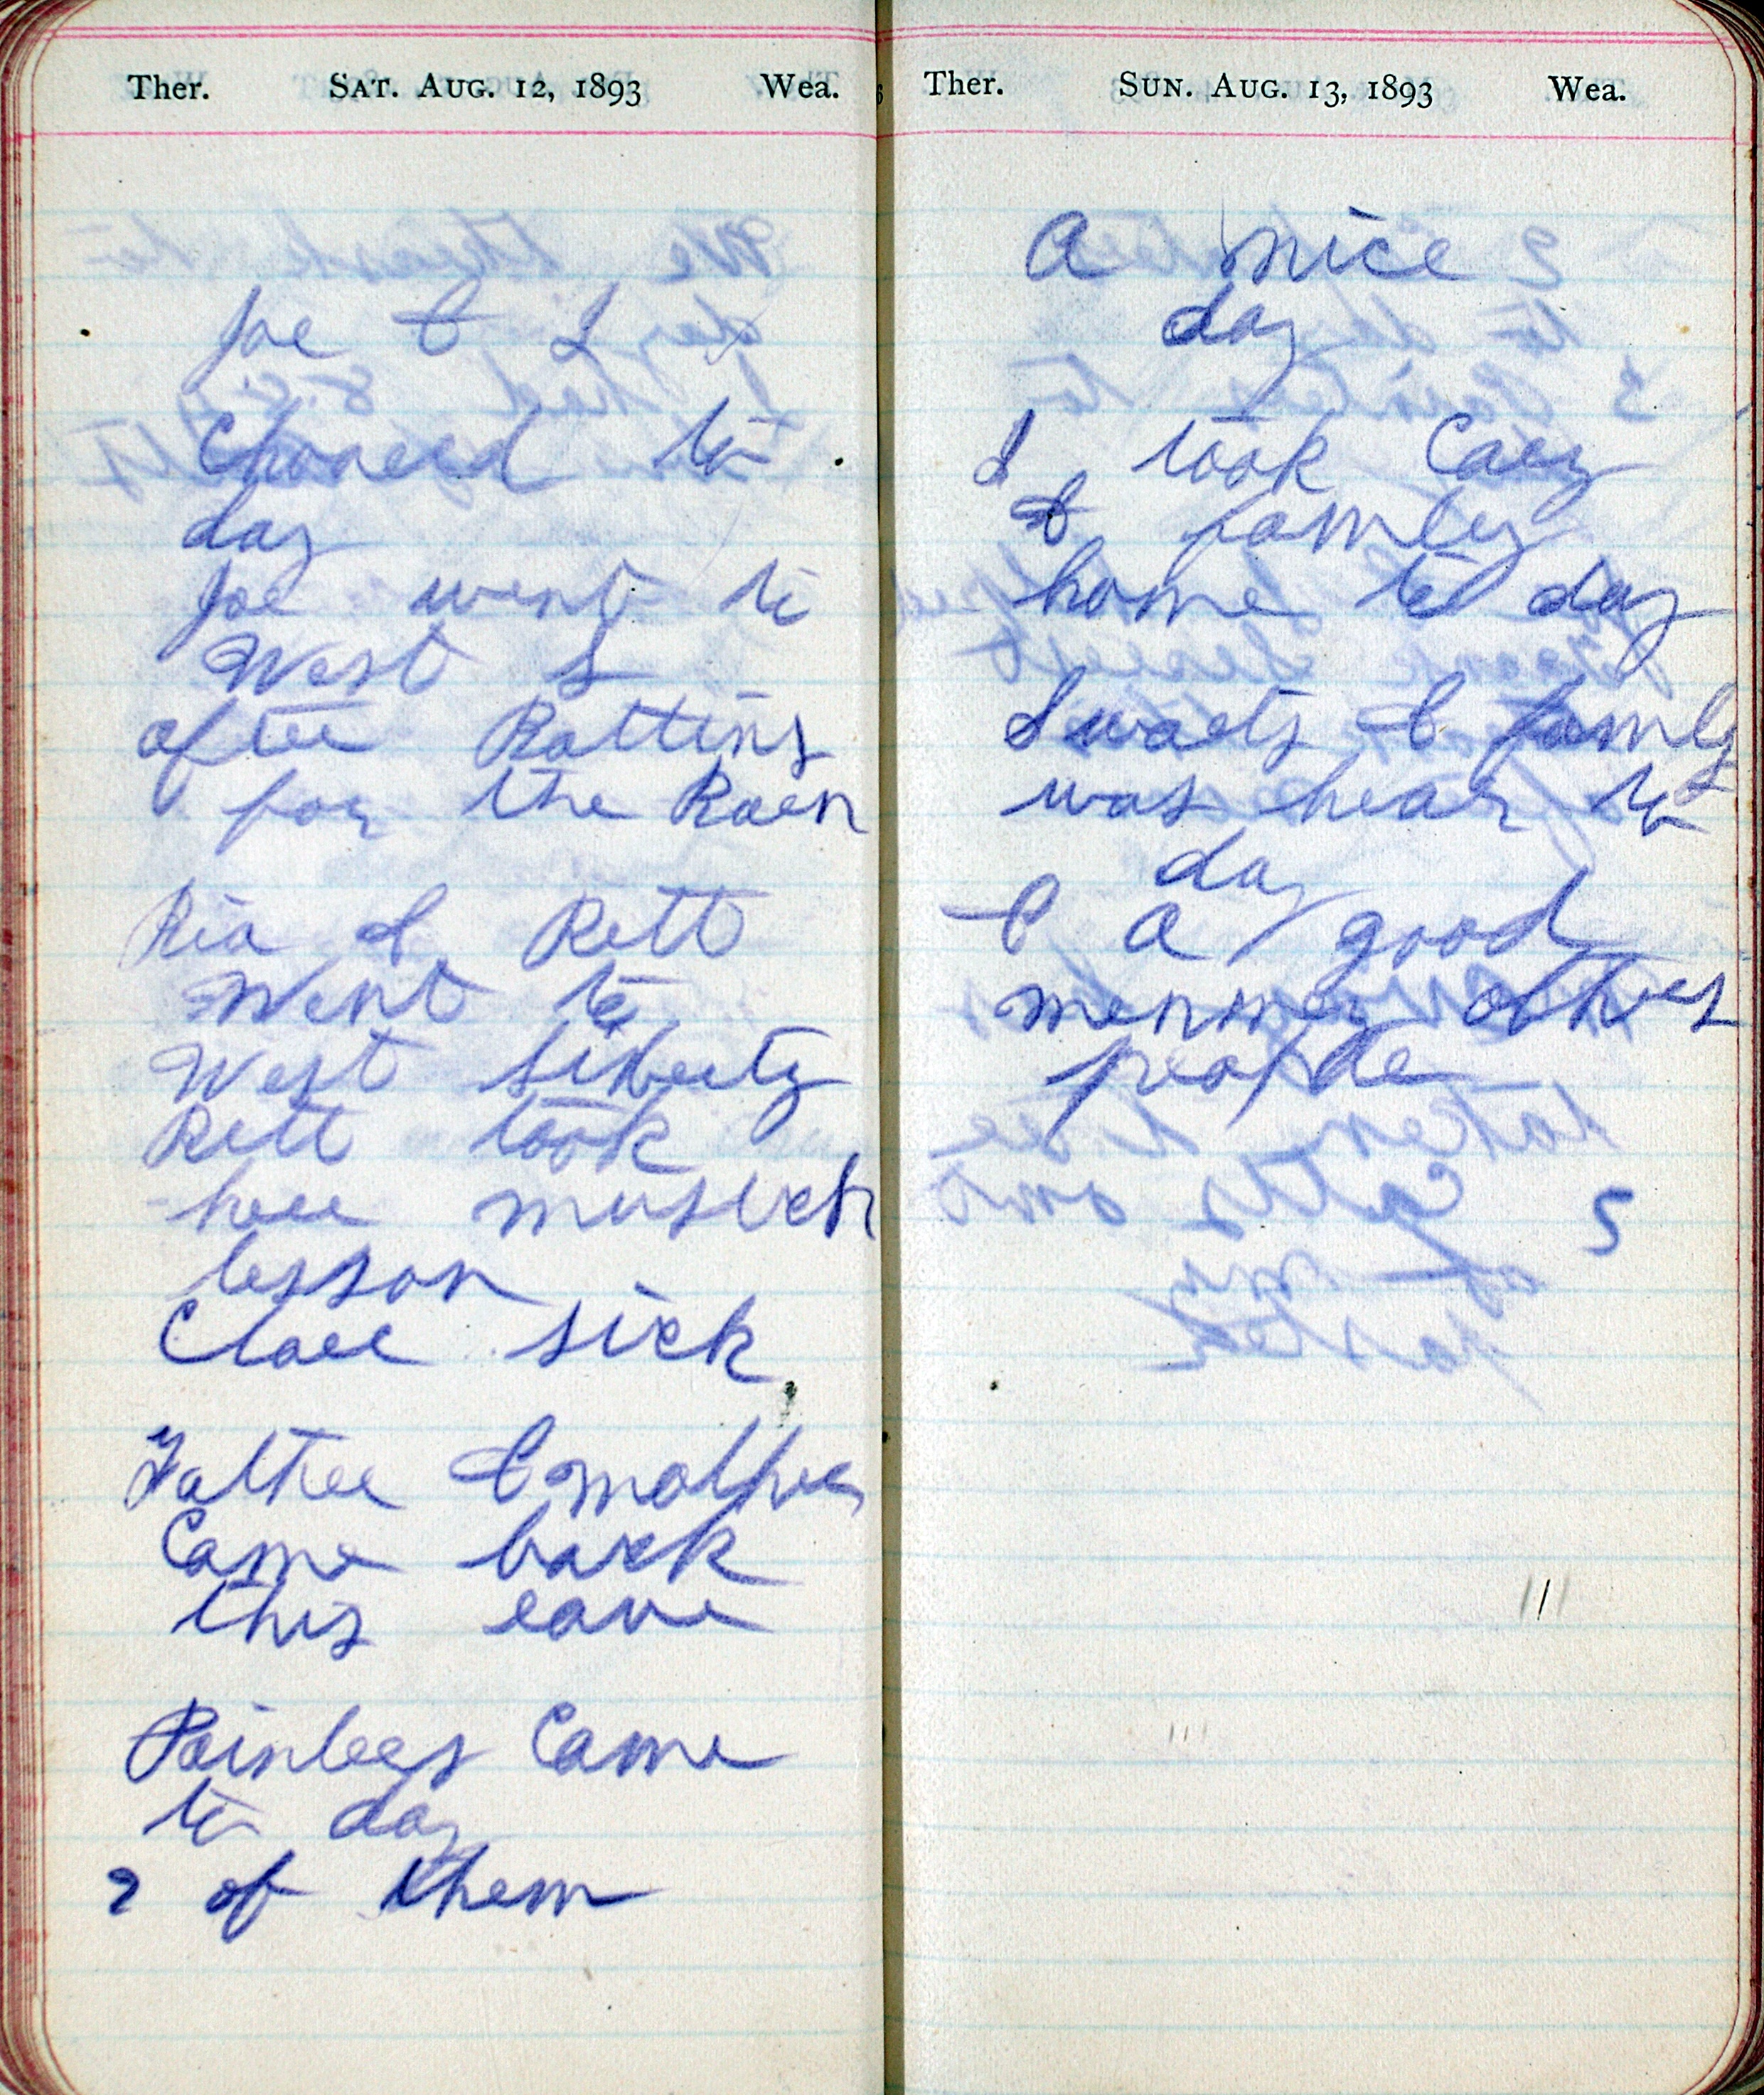 Ther. SAT. AUG. 12, 1893 Wea.
Joe & I
Chored to
day
Joe went to
West L
after Rattins
for the Raen
Ria & Rett
Went to
West Liberty
Rett took
her musick
lesson
Clare sick
Father & mother
Came back
this eave
Painters Came
to day
2 of them
Ther. SUN. AUG. 13, 1893 Wea.
A nice
day
I took Cary
& famly
home to day
Swarts & famly
was hear to
day
& a good
menney others
people